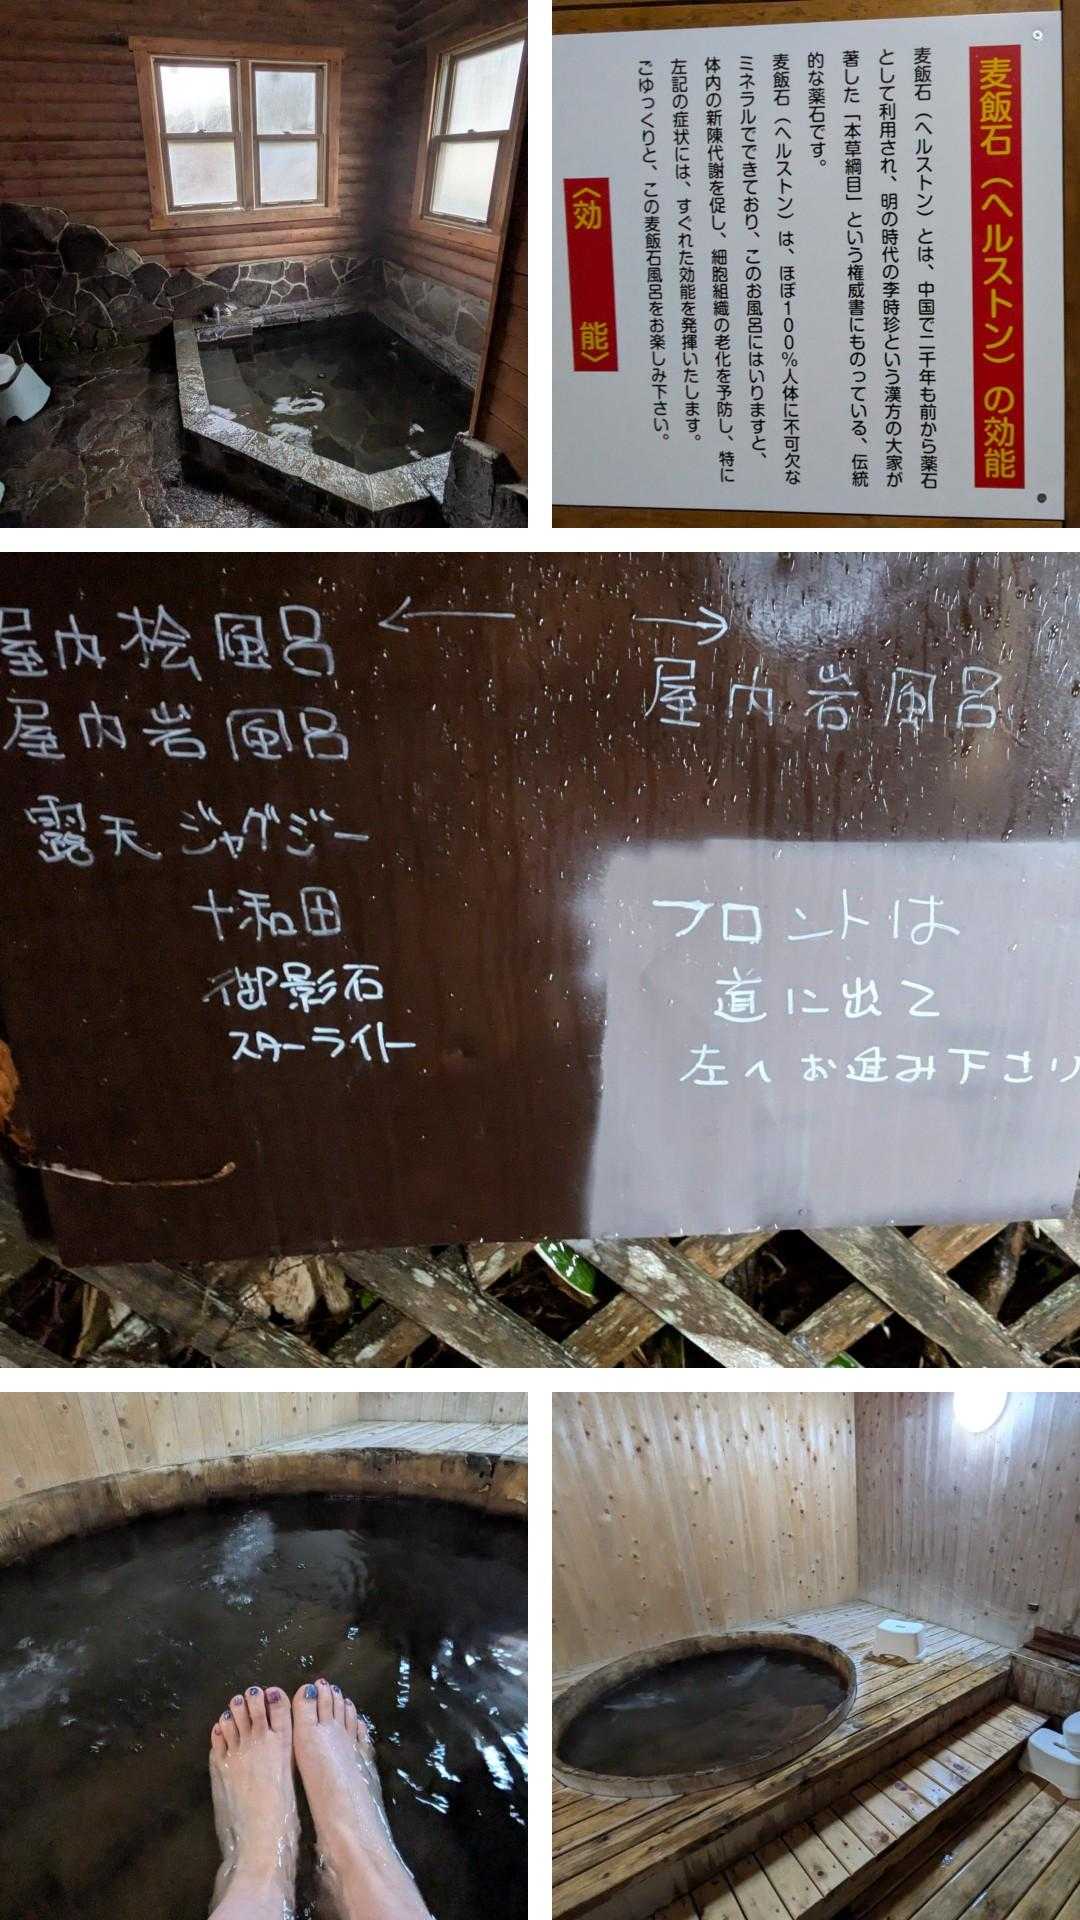 麦飯石（ヘルストン）の効能
麦飯石（ヘルストン）とは、中国で二千年も前から薬石
として利用され、明の時代の李時珍という漢方の大家が
著した「本草綱目」という権威書にものっている、伝統
的な薬石です。
麦飯石（ヘルストン）は、ほぼ100%人体に不可欠な
ミネラルでできており、このお風呂にはいりますと、
体内の新陳代謝を促し、細胞組織の老化を予防し、特に
左記の症状には、すぐれた効能を発揮いたします。
ごゆっくりと、この麦飯石風呂をお楽しみ下さい。
〈効 能〉
← →
屋内桧風呂
屋内岩風呂
露天 ジャグジー
十和田
御影石
スターライト
屋内岩風呂
フロントは
道に出て
左へお進み下さい